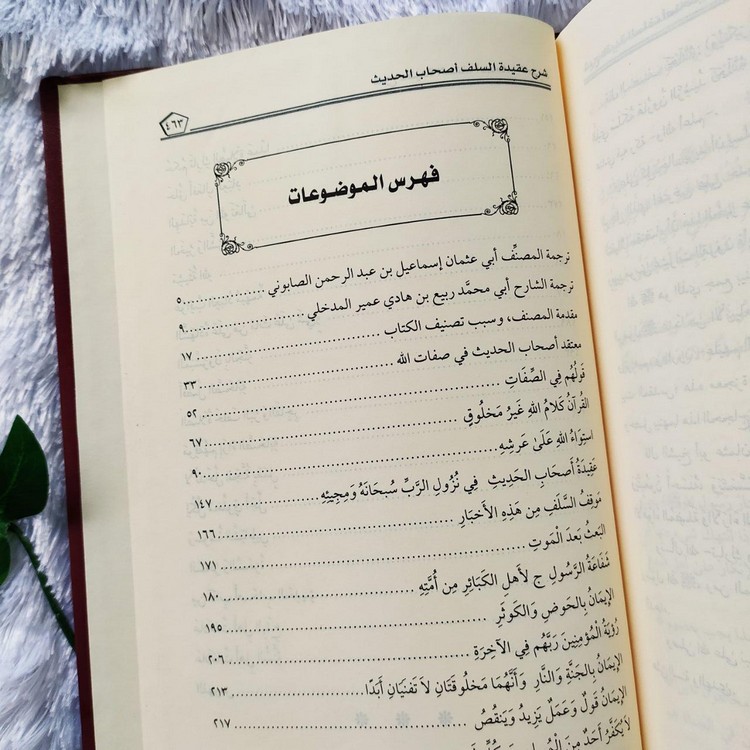 شرح عقيدة السلف أصحاب الحديث
٤٦٣
فهرس الموضوعات
ترجمة المصنِّف أبي عثمان إسماعيل بن عبد الرحمن الصابوني ٥
ترجمة الشارح أبي محمَّد ربيع بن هادي عمير المدخلي ٩
مقدمة المصنف، وسبب تصنيف الكتاب ١٧
معتقد أصحاب الحديث في صفات الله ٣٣
قَولُهُم فِي الصِّفَاتِ ٥٢
القُرآنُ كَلَامُ اللهِ غَيرُ مَخلُوقٍ ٦٧
استِوَاءُ اللهِ عَلَىٰ عَرشِهِ ٩٠
عَقِيدَةُ أَصحَابِ الحَدِيثِ فِي نُزُولِ الرَّبِّ سُبحَانَهُ وَمَجِيئِهِ ١٤٧
مَوقِفُ السَّلَفِ مِن هَذِهِ الأَخبَارِ ١٦٦
البَعثُ بَعدَ الْمَوتِ ١٧١
شَفَاعَةُ الرَّسُولِ ج لِأَهلِ الكَبَائِرِ مِن أُمَّتِهِ ١٨٠
الإِيمَانُ بِالحَوضِ وَالكَوثَرِ ١٩٥
رُؤيَةُ الْمُؤمِنِينَ رَبَّهُم فِي الآخِرَةِ ٢٠٦
الإِيمَانُ بِالجَنَّةِ وَالنَّارِ وَأَنَّهُمَا مَخلُوقَتَانِ لاَ تَفنَيَانِ أَبَدًا ٢١٣
الإِيمَانُ قَولٌ وَعَمَلٌ يَزِيدُ وَيَنقُصُ ٢١٧
لاَ يُكَفَّرُ أَحَدٌ مِنَ